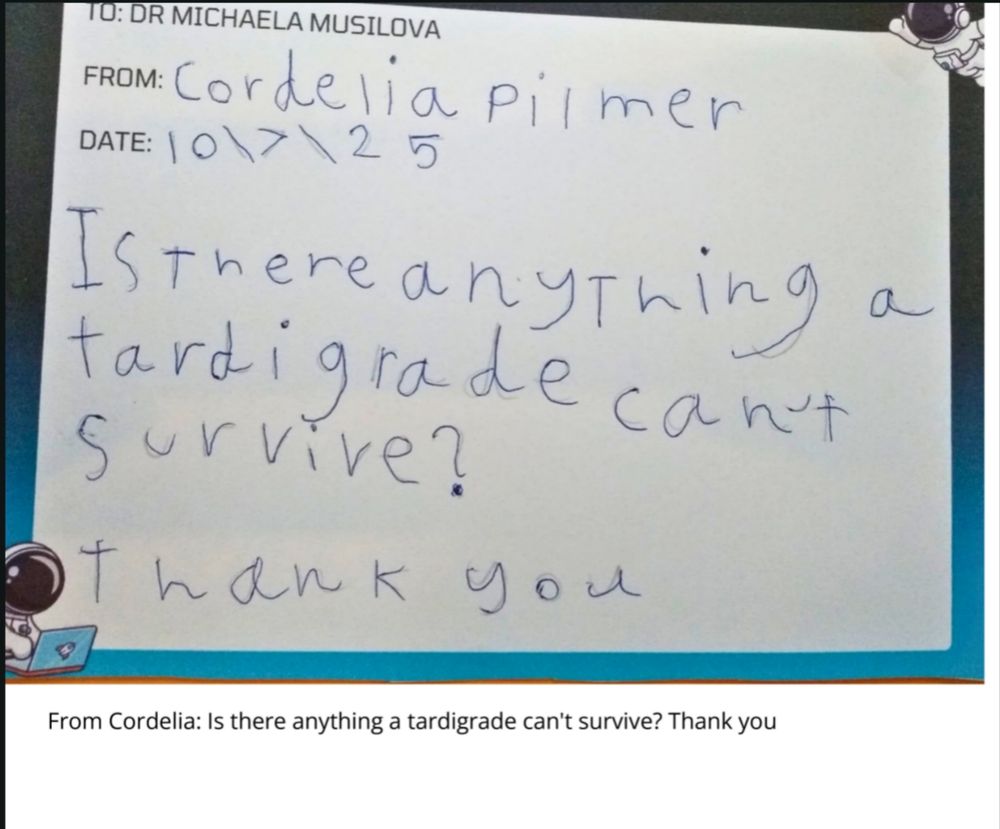 TO: DR MICHAELA MUSILOVA
FROM: Cordelia Pilmer
DATE: 10\7\25
Is there anything a
tardigrade can't
survive?
Thank you
From Cordelia: Is there anything a tardigrade can't survive? Thank you